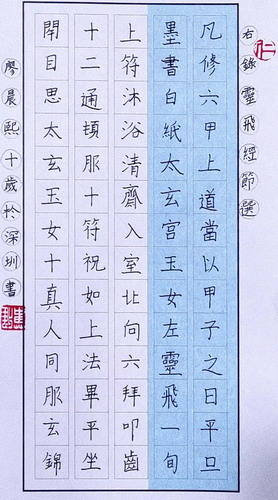 右錄靈飛經節選
凡修六甲上道當以甲子之日平旦
墨書白紙太玄宮玉女左靈飛一旬
上符沐浴清齋入室北向六拜叩齒
十二通頓服十符祝如上法畢平坐
閉目思太玄玉女十真人同服玄錦
廖晨熙十歲於深圳書